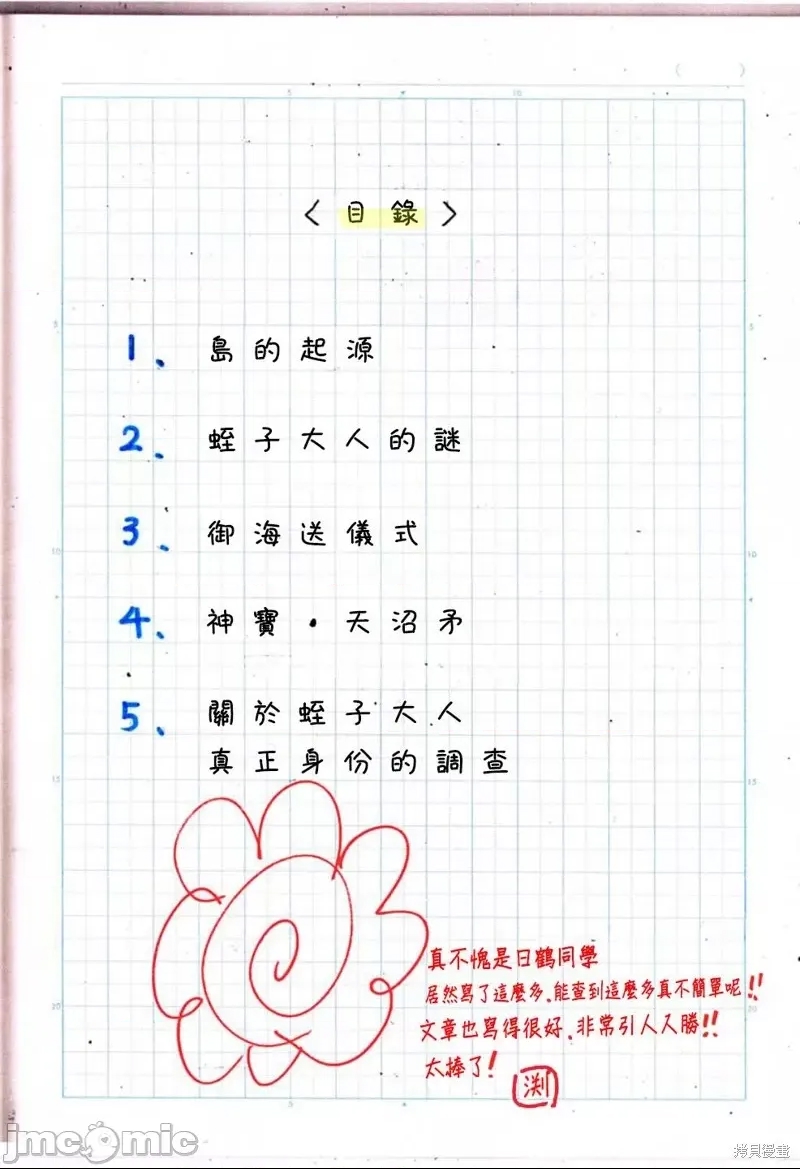 〈目錄〉
1、島的起源
2、蛭子大人的謎
3、御海送儀式
4、神寶・天沼矛
5、關於蛭子大人
真正身份的調查
真不愧是日鶴同學
居然寫了這麼多、能查到這麼多真不簡單呢!!
文章也寫得很好、非常引人入勝!!
太捧了!
渕
jmcomic
拷貝漫畫